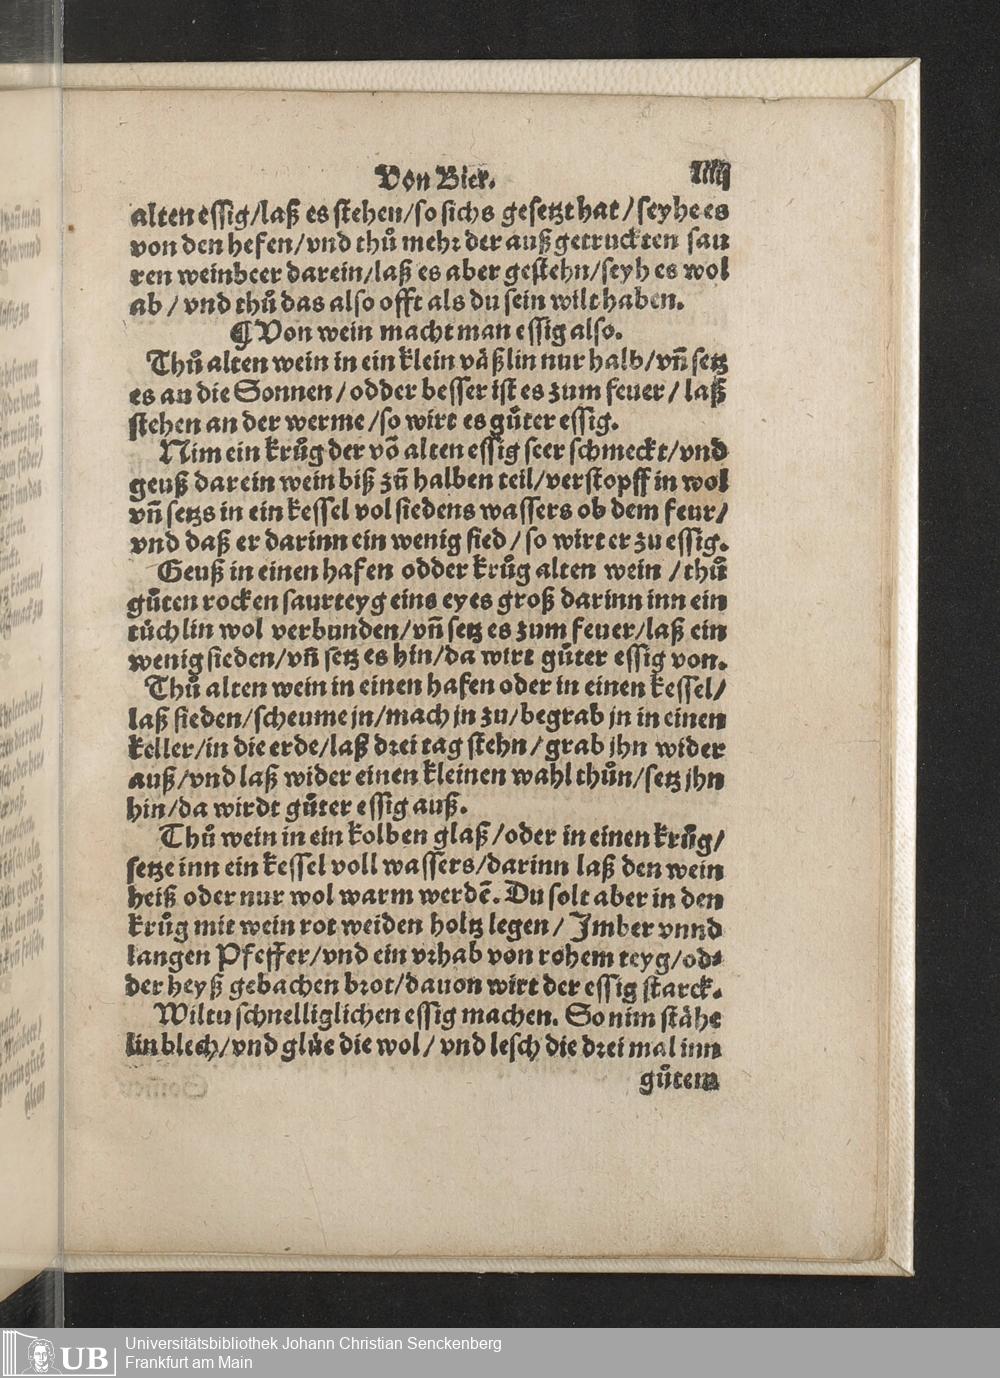 Von Bier. IIIIj
alten essig/laß es stehen/so sichs gesetzt hat/seyhe es
von den hefen/vnd thů mehr der außgetruckten sau
ren weinbeer darein/laß es aber gestehn/seyh es wol
ab/vnd thů das also offt als du sein wilt haben.
¶ Von wein macht man essig also.
Thů alten wein in ein klein väßlin nur halb/vñ setz
es an die Sonnen/odder besser ist es zum feuer/laß
stehen an der werme/so wirt es gůter essig.
Nim ein krůg der võ alten essig seer schmeckt/vnd
geuß darein wein biß zũ halben teil/verstopff in wol
vñ setzs in ein kessel vol siedens wassers ob dem feur/
vnd daß er darinn ein wenig sied/so wirt er zu essig.
Geuß in einen hafen odder krůg alten wein/thů
gůten rocken saurteyg eins eyes groß darinn inn ein
tůchlin wol verbunden/vñ setz es zum feuer/laß ein
wenig sieden/vñ setz es hin/da wirt gůter essig von.
Thů alten wein in einen hafen oder in einen kessel/
laß sieden/scheume jn/mach jn zu/begrab jn in einen
keller/in die erde/laß drei tag stehn/grab jhn wider
auß/vnd laß wider einen kleinen wahl thůn/setz jhn
hin/da wirdt gůter essig auß.
Thů wein in ein kolben glaß/oder in einen krůg/
setze inn ein kessel voll wassers/darinn laß den wein
heiß oder nur wol warm werdẽ. Du solt aber in den
krůg mit wein rot weiden holtz legen/Imber vnnd
langen Pfeffer/vnd ein vrhab von rohem teyg/od⸗
der heyß gebachen brot/dauon wirt der essig starck.
Wiltu schnelliglichen essig machen. So nim stähe
lin blech/vnd glůe die wol/vnd lesch die drei mal inn
gůtem
UB Universitätsbibliothek Johann Christian Senckenberg
Frankfurt am Main